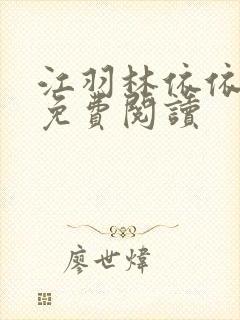 江羽林依依
免費閱讀
廖世煒